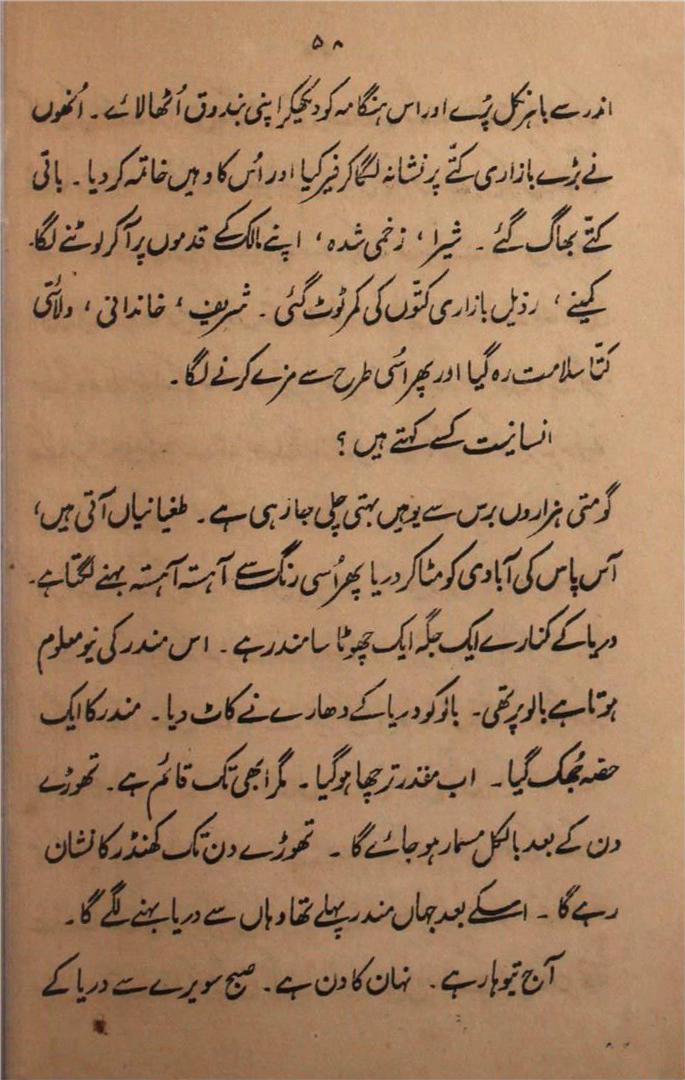 ۵۸
اندر سے باہر نکل پڑے اور اس ہنگامہ کو دیکھکر اپنی بندوق اُٹھا لائے۔ اُنھوں
نے بڑے بازاری کتّے پر نشانہ لگا کر فیر کیا اور اُس کا وہیں خاتمہ کر دیا۔ باقی
کتّے بھاگ گئے۔ شیرا، زخمی شدہ، اپنے مالک کے قدموں پر آکر لوٹنے لگا۔
کمینے، رذیل بازاری کتّوں کی کمر ٹوٹ گئی۔ شریف، خاندانی، ولائتی
کتّا سلامت رہ گیا اور پھر اُسی طرح سے مزے کرنے لگا۔
انسانیت کسے کہتے ہیں؟
گومتی ہزاروں برس سے یوہیں بہتی چلی جا رہی ہے۔ طغیانیاں آتی ہیں،
آس پاس کی آبادی کو مٹا کر دریا پھر اُسی رنگ سے آہستہ آہستہ بہنے لگتا ہے۔
دریا کے کنارے ایک جگہ ایک چھوٹا سا مندر ہے۔ اس مندر کی نیو معلوم
ہوتا ہے بالو پر تھی۔ بالو کو دریا کے دھارے نے کاٹ دیا۔ مندر کا ایک
حصّہ جُھک گیا۔ اب مندر ترچھا ہو گیا۔ مگر ابھی تک قائم ہے۔ تھوڑے
دن کے بعد بالکل مسمار ہو جائے گا۔ تھوڑے دن تک کھنڈر کا نشان
رہے گا۔ اسکے بعد جہاں مندر پہلے تھا وہاں سے دریا بہنے لگے گا۔
آج تیوہار ہے۔ نہان کا دن ہے۔ صبح سویرے سے دریا کے